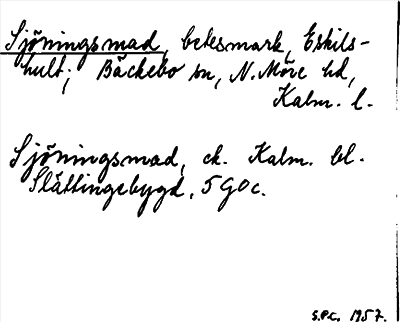 Sjöningsmad, betesmark, Eskils-
hult; Bäckebo sn, N. Möre hd,
Kalm. l.
Sjöningsmad, ek. Kalm. bl.
Slättingebygd, 5 G O c.
S.P.C. 1957.